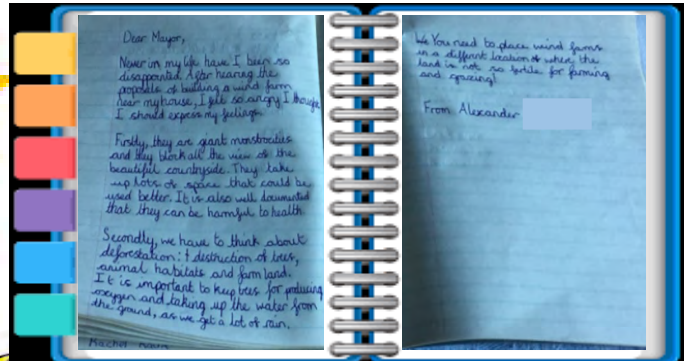 Dear Mayor,
Never in my life have I been so
disappointed. After hearing the
proposals of building a wind farm
near my house, I felt so angry I thought
I should express my feelings.
Firstly, they are giant monstrocities
and they block all the view of the
beautiful countryside. They take
up lots of space that could be
used better. It is also well documented
that they can be harmful to health.
Secondly, we have to think about
deforestation: destruction of trees,
animal habitats and farm land.
It is important to keep trees for producing
oxygen and taking up the water from
the ground, as we get a lot of rain.
We You need to place wind farms
in a different location where the
land is not so fertile for farming
and grazing!
From Alexander